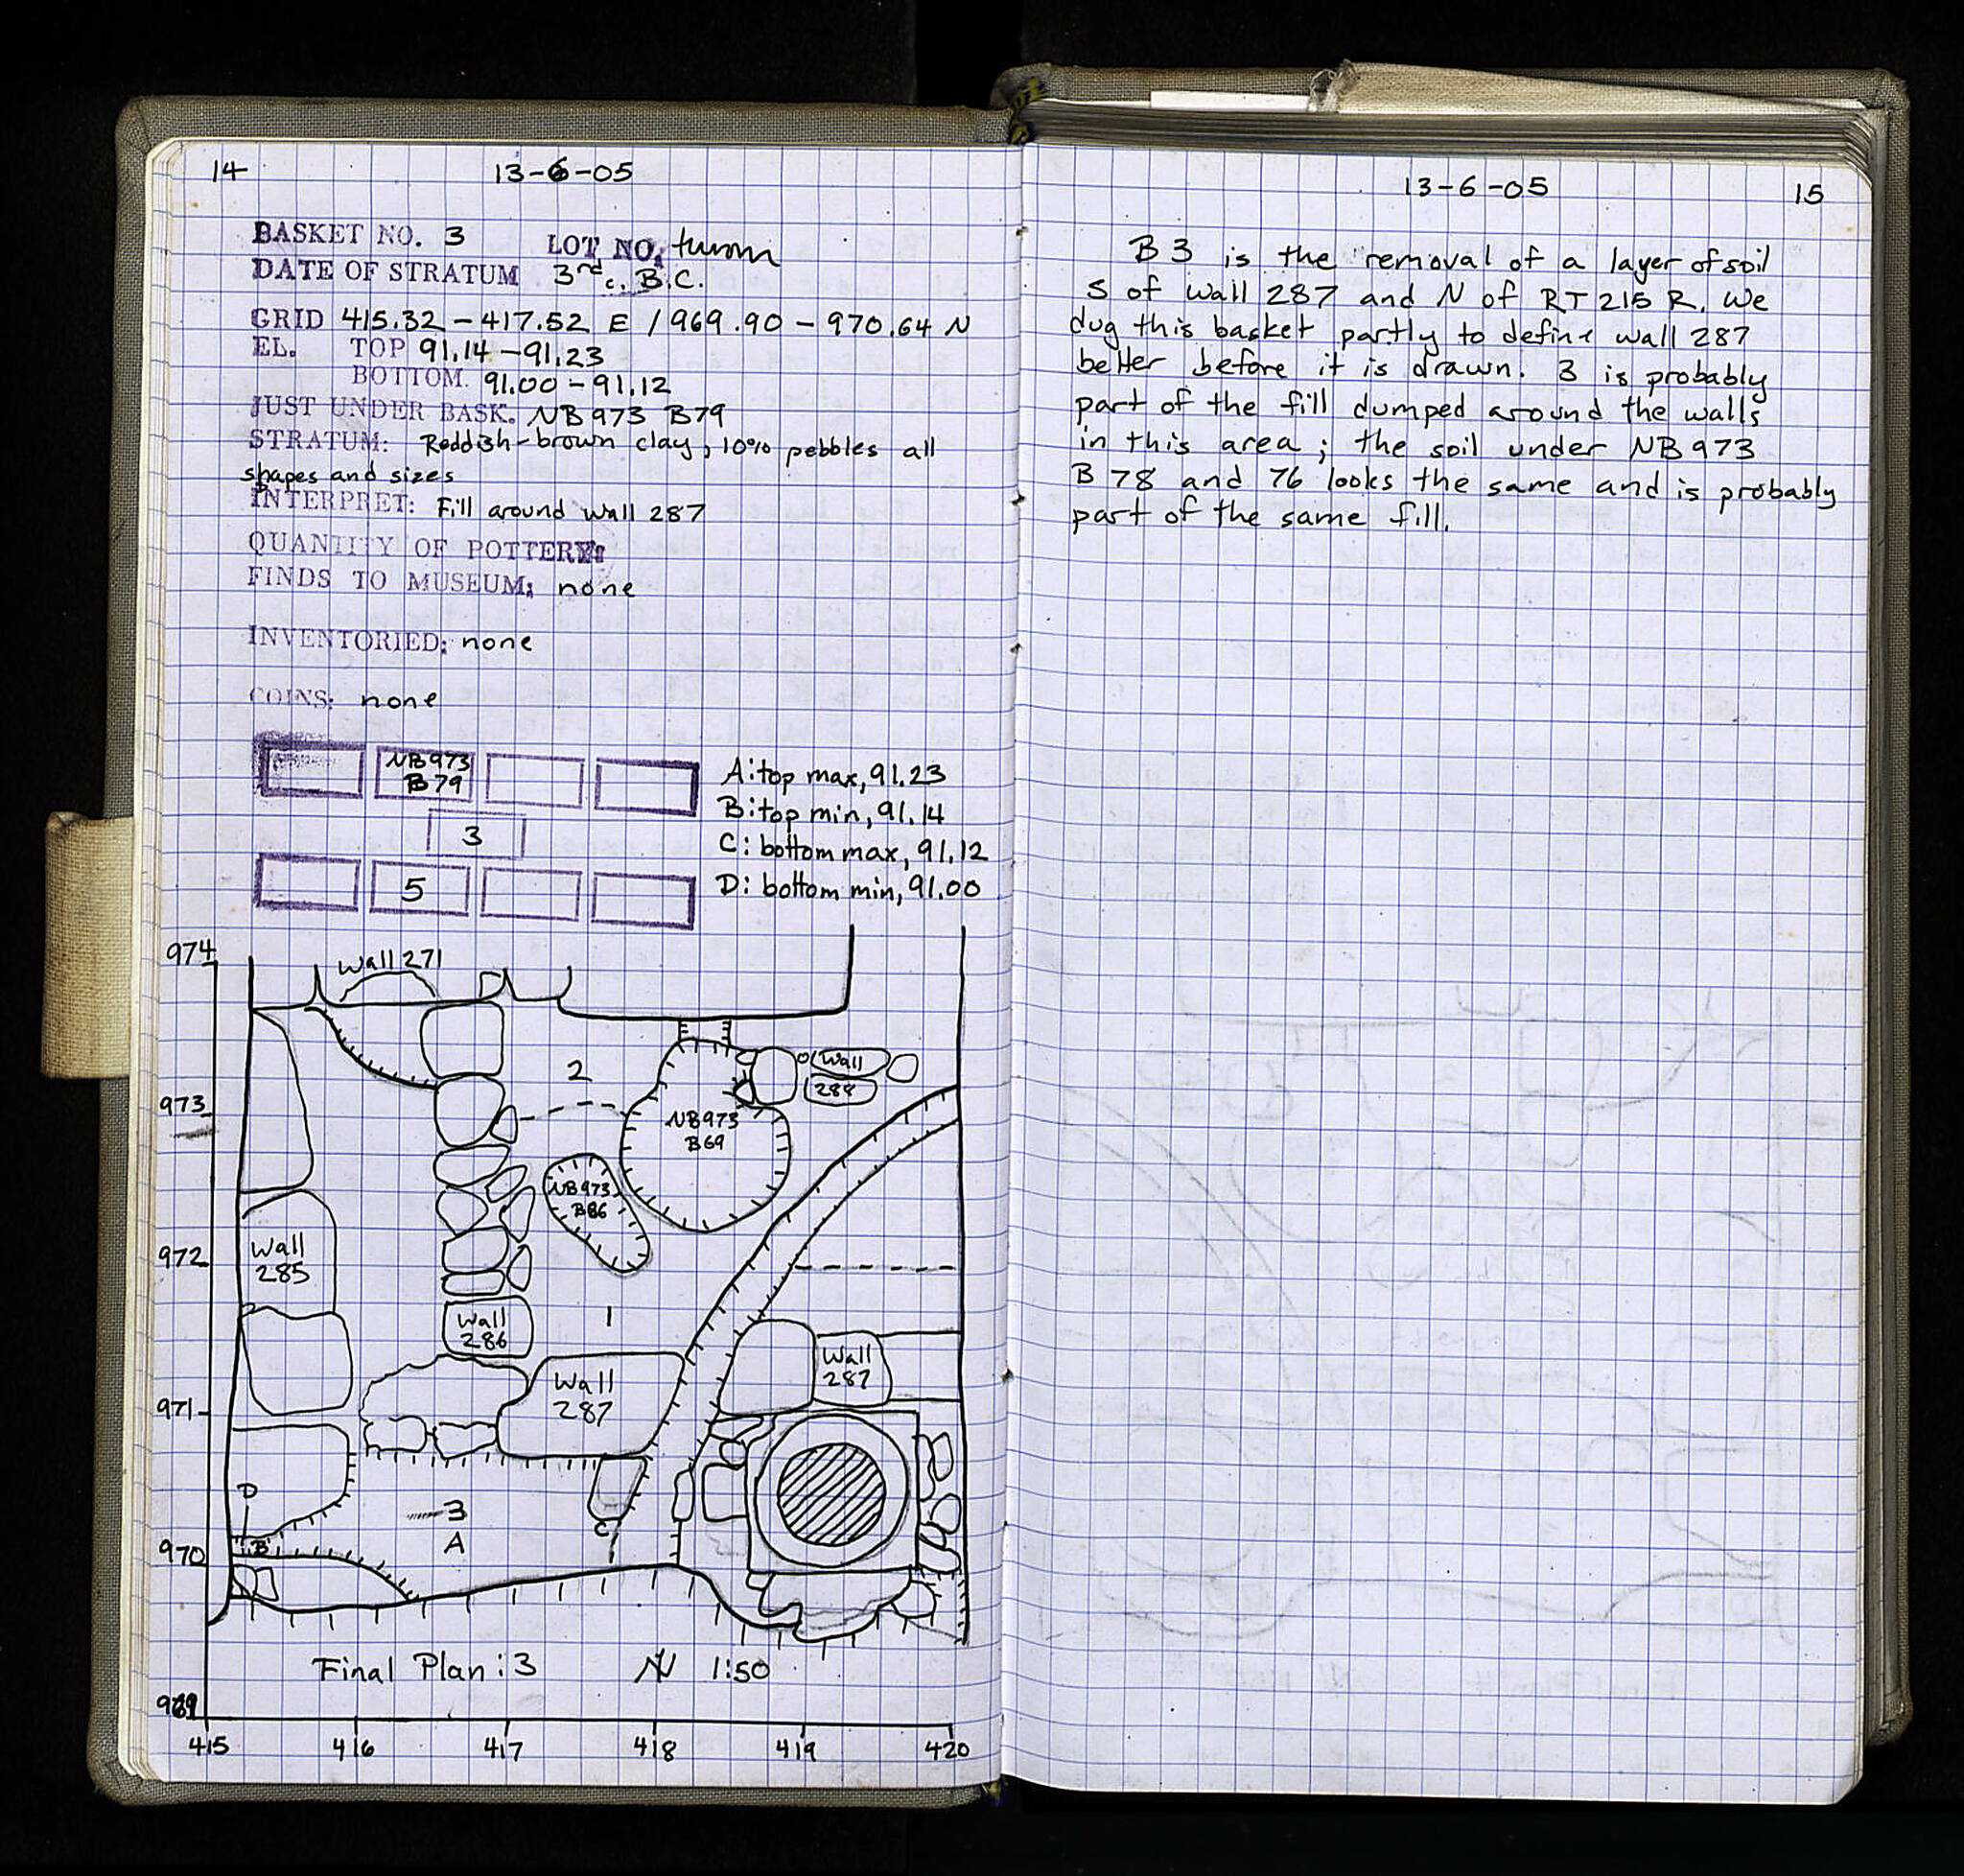 14
13-6-05
BASKET NO. 3 LOT NO.
DATE OF STRATUM 3rd c. B.C.
GRID 415.32-417.52 E / 969.90-970.64 N
EL. TOP 91.14-91.23
BOTTOM. 91.00-91.12
JUST UNDER BASK. NB973 B79
STRATUM: Reddish-brown clay, 10% pebbles all
shapes and sizes
INTERPRET: Fill around wall 287
QUANTITY OF POTTERY:
FINDS TO MUSEUM: none
INVENTORIED: none
COINS: none
NB973
B79
3
5
A: top max, 91.23
B: top min, 91.14
C: bottom max, 91.12
D: bottom min, 91.00
974
Wall 271
2
Wall
288
973
NB973
B69
NB973
B86
Wall
285
972
1
Wall
286
Wall
287
Wall
287
971
D
3
A
C
B
970
Final Plan: 3 N 1:50
969
415 416 417 418 419 420
13-6-05
15
B 3 is the removal of a layer of soil
S of wall 287 and N of RT 215 R. We
dug this basket partly to define wall 287
better before it is drawn. 3 is probably
part of the fill dumped around the walls
in this area; the soil under NB973
B 78 and 76 looks the same and is probably
part of the same fill.